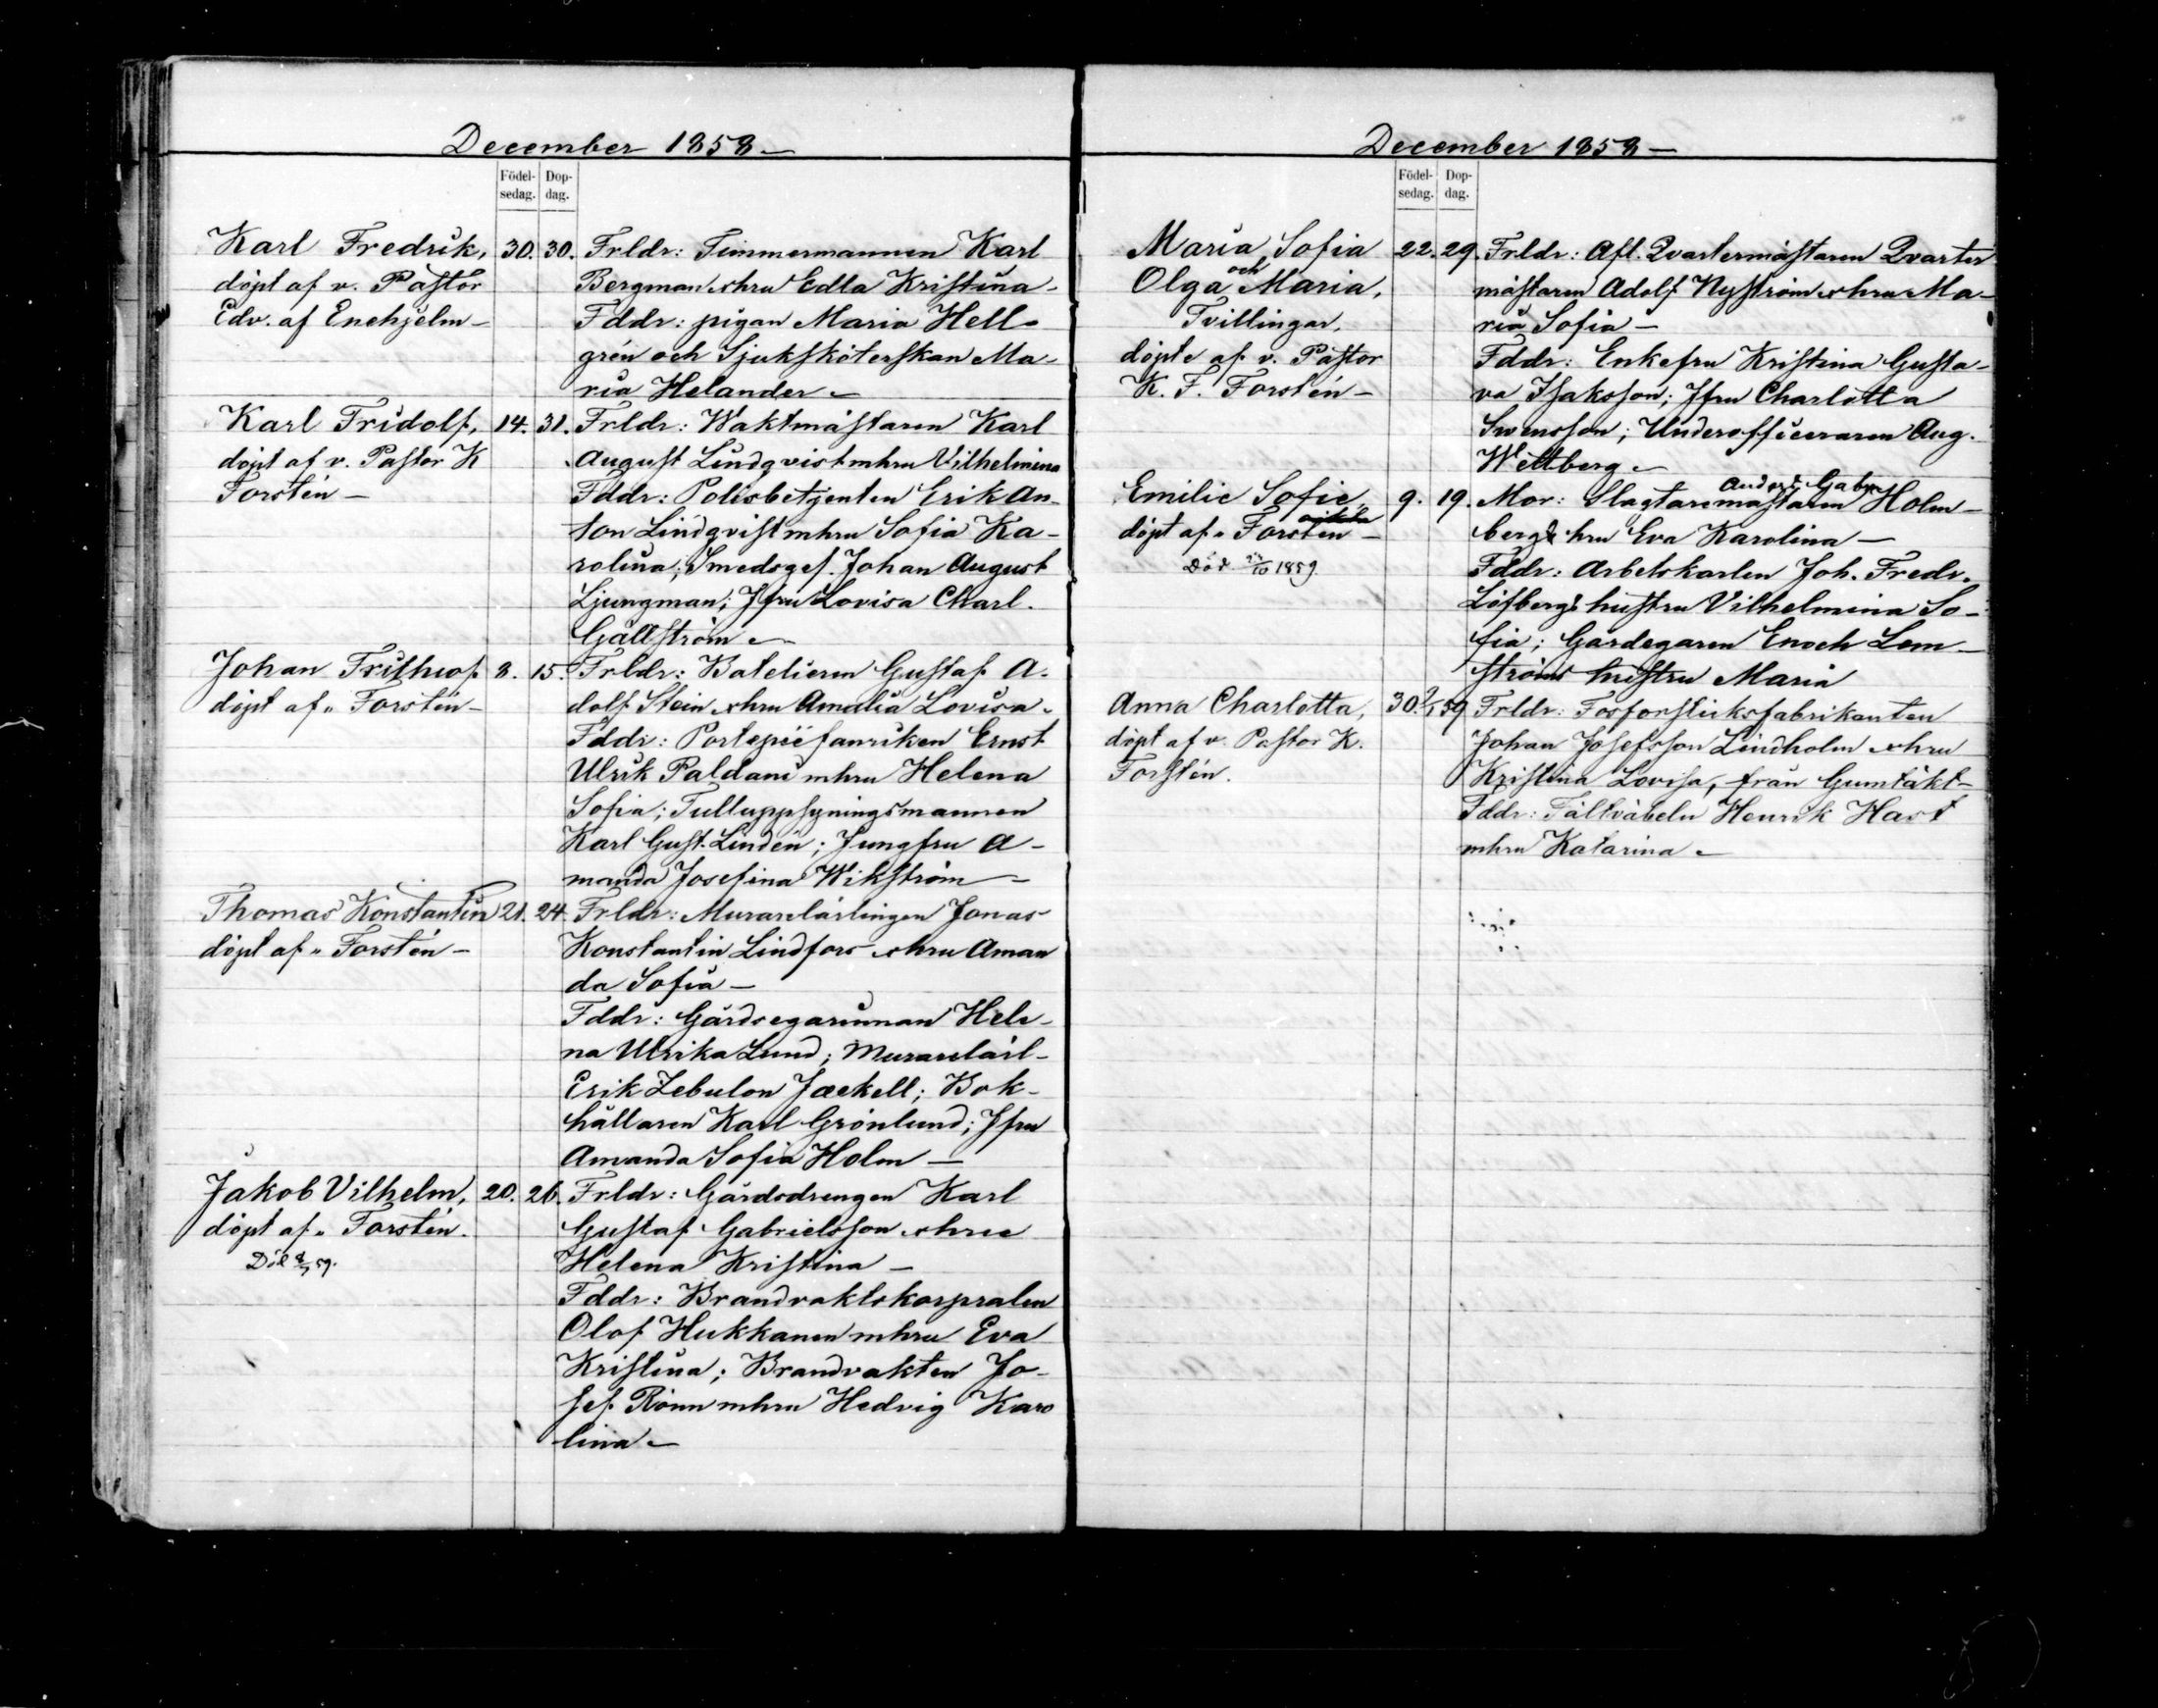 December 1858 —
Födel-
sedag.
Dop-
dag.
Karl Fredrik,
döpt af v. Pastor
Edv. af Enehjelm —
30. 30.
Frldr: Timmermannen Karl
Bergman o hru Edla Kristina -
Fddr: pigan Maria Hell-
grén och Sjuksköterskan Ma-
ria Helander —
Karl Fridolf,
döpt af v. Pastor K
Forstén —
14. 31.
Frldr: Waktmästaren Karl
August Lindqvist m hru Vilhelmina
Fddr: Polisbetjenten Erik An-
ton Lindqvist m hru Sofia Ka-
rolina; Smedsges. Johan August
Ljungman; Jfru Lovisa Charl.
Gällström —
Johan Frithiof
döpt af " Forstén —
8. 15.
Frldr: Batelieren Gustaf A-
dolf Stein o hru Amalia Lovisa -
Fddr: Portepiéfanriken Ernst
Ulrik Paldani m hru Helena
Sofia; Tulluppsyningsmannen
Karl Gust. Lindén; Jungfru A-
manda Josefina Wikström —
Thomas Konstantin
döpt af " Forstén —
21. 24.
Frldr: Murarelärlingen Jonas
Konstantin Lindfors o hru Aman
da Sofia —
Fddr: Gårdsegarinnan Hele-
na Ulrika Lund; Murarelärl-
Erik Zebulon Jaekell; Bok-
hållaren Karl Grönlund; Jfru
Amanda Sofia Holm —
Jakob Vilhelm,
döpt af " Forstén.
Död 59.
20. 26.
Frldr: Gårdsdrengen Karl
Gustaf Gabrielsson o hru
Helena Kristina —
Fddr: Brandvaktskorpralen
Olof Hukkanen m hru Eva
Kristina; Brandvakten Jo-
sef Rönn m hru Hedvig Karo
lina —
December 1858 —
Födel-
sedag.
Dop-
dag.
Maria Sofia
och
Olga Maria,
Tvillingar,
döpte af v. Pastor
K. F. Forstén —
22. 29.
Frldr: Afl. Qvartermästaren Qvarter
mästaren Adolf Nyström o hru Ma-
ria Sofia —
Fddr: Enkefru Kristina Gusta-
va Isaksson; Jfru Charlotta
Swensson; Underofficeraren Aug.
Wettberg —
Emilie Sofie,
döpt af " Forstén —
Död /10 1859.
9. 19.
Anders Gabr.
Mor: Slagtaremästaren Holm-
bergs hru Eva Karolina —
Fddr: Arbetskarlen Joh. Fredr.
Löfbergs hustru Vilhelmina So-
fia; Gårdegaren Enoch Lem-
ströms hustru Maria
Anna Charlotta,
döpt af v. Pastor K.
Forstén.
30. 2/1 59
Frldr: Fosforsticksfabrikanten
Johan Josefsson Lindholm o hru
Kristina Lovisa, från Gumtäkt —
Fddr: Fältväbeln Henrik Hast
m hru Katarina —